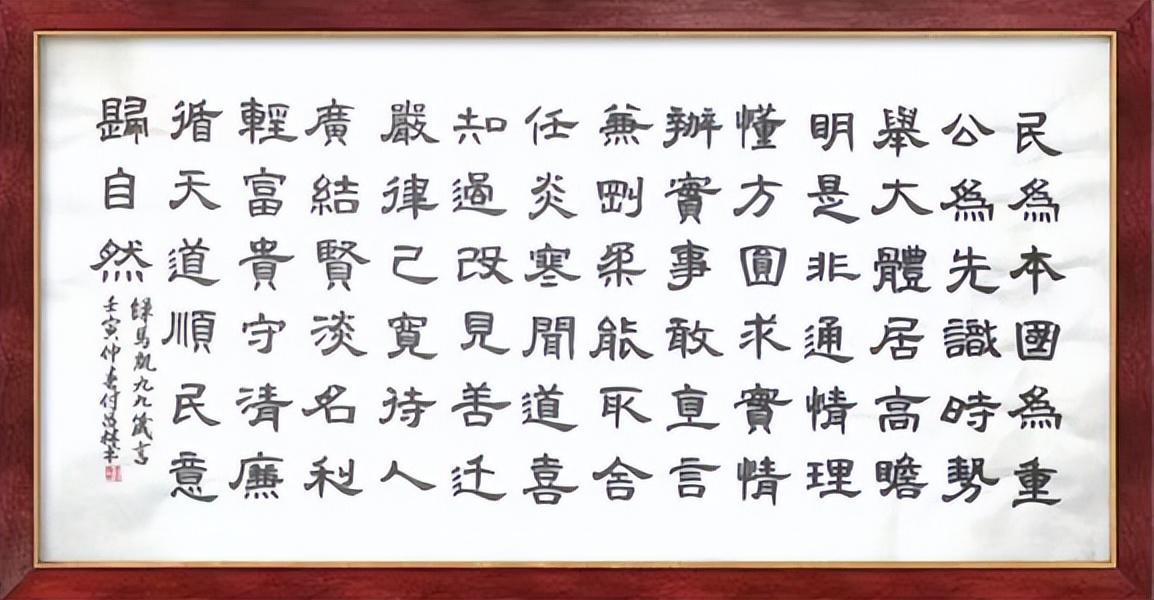 民為本國為重
公為先識時勢
舉大體居高瞻
明是非通情理
懂方圓求實情
辦實事敢直言
兼剛柔能取舍
任炎寒聞道喜
知過改見善迁
嚴律己寬待人
廣結賢淡名利
輕富貴守清廉
循天道順民意
歸自然
錄馬凱九九箴言
壬寅仲春付